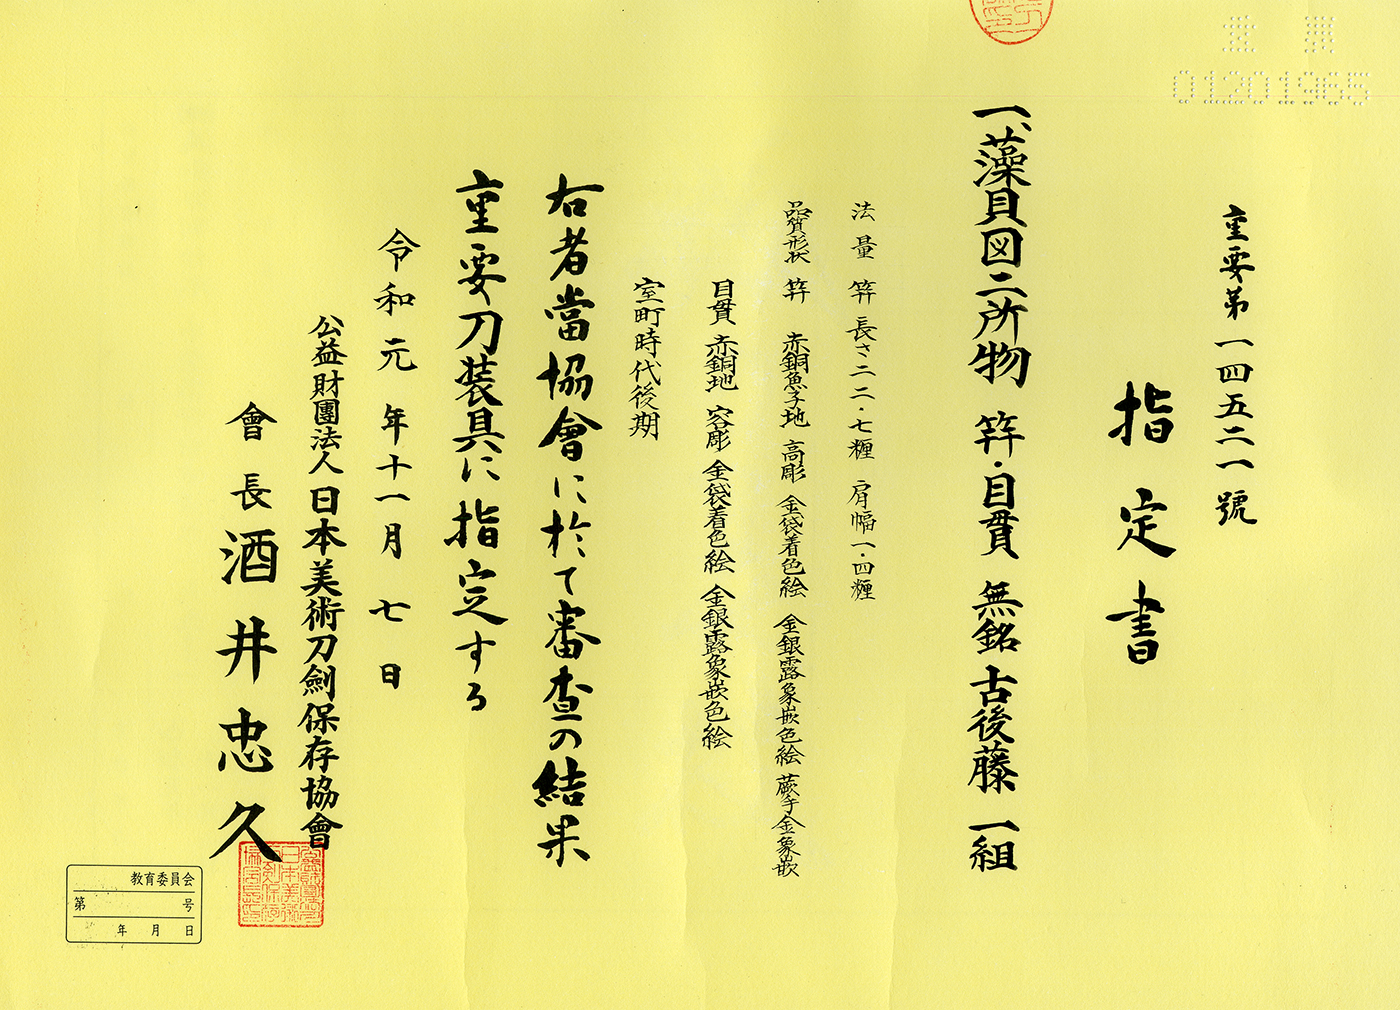 重要
01201965
重要第一四五二一號
指定書
一、藻貝図二所物 笄・目貫 無銘 古後藤 一組
法量 笄 長さ二二・七糎 肩幅一・四糎
品質形状 笄 赤銅魚子地 高彫 金袋着色絵 金銀露象嵌色絵 蕨手金象嵌
目貫 赤銅地 容彫 金袋着色絵 金銀露象嵌色絵
室町時代後期
右者當協會に於て審査の結果
重要刀装具に指定する
令和元年十一月七日
公益財團法人日本美術刀劍保存協會
會長 酒井忠久
教育委員会
第 号
年 月 日